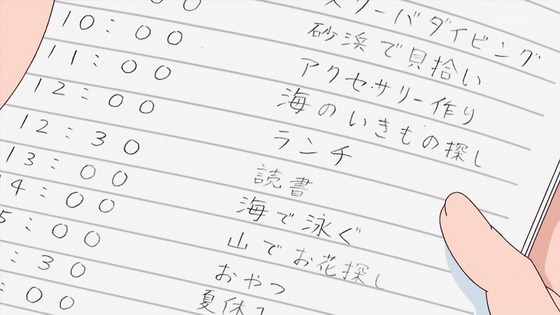 スクーバダイビング
00 砂浜で貝拾い
10:00 アクセサリー作り
11:00 海のいきもの探し
12:00 ランチ
12:30 読書
13:00 海で泳ぐ
4:00 山でお花探し
5:00 おやつ
:30 夏休
:00